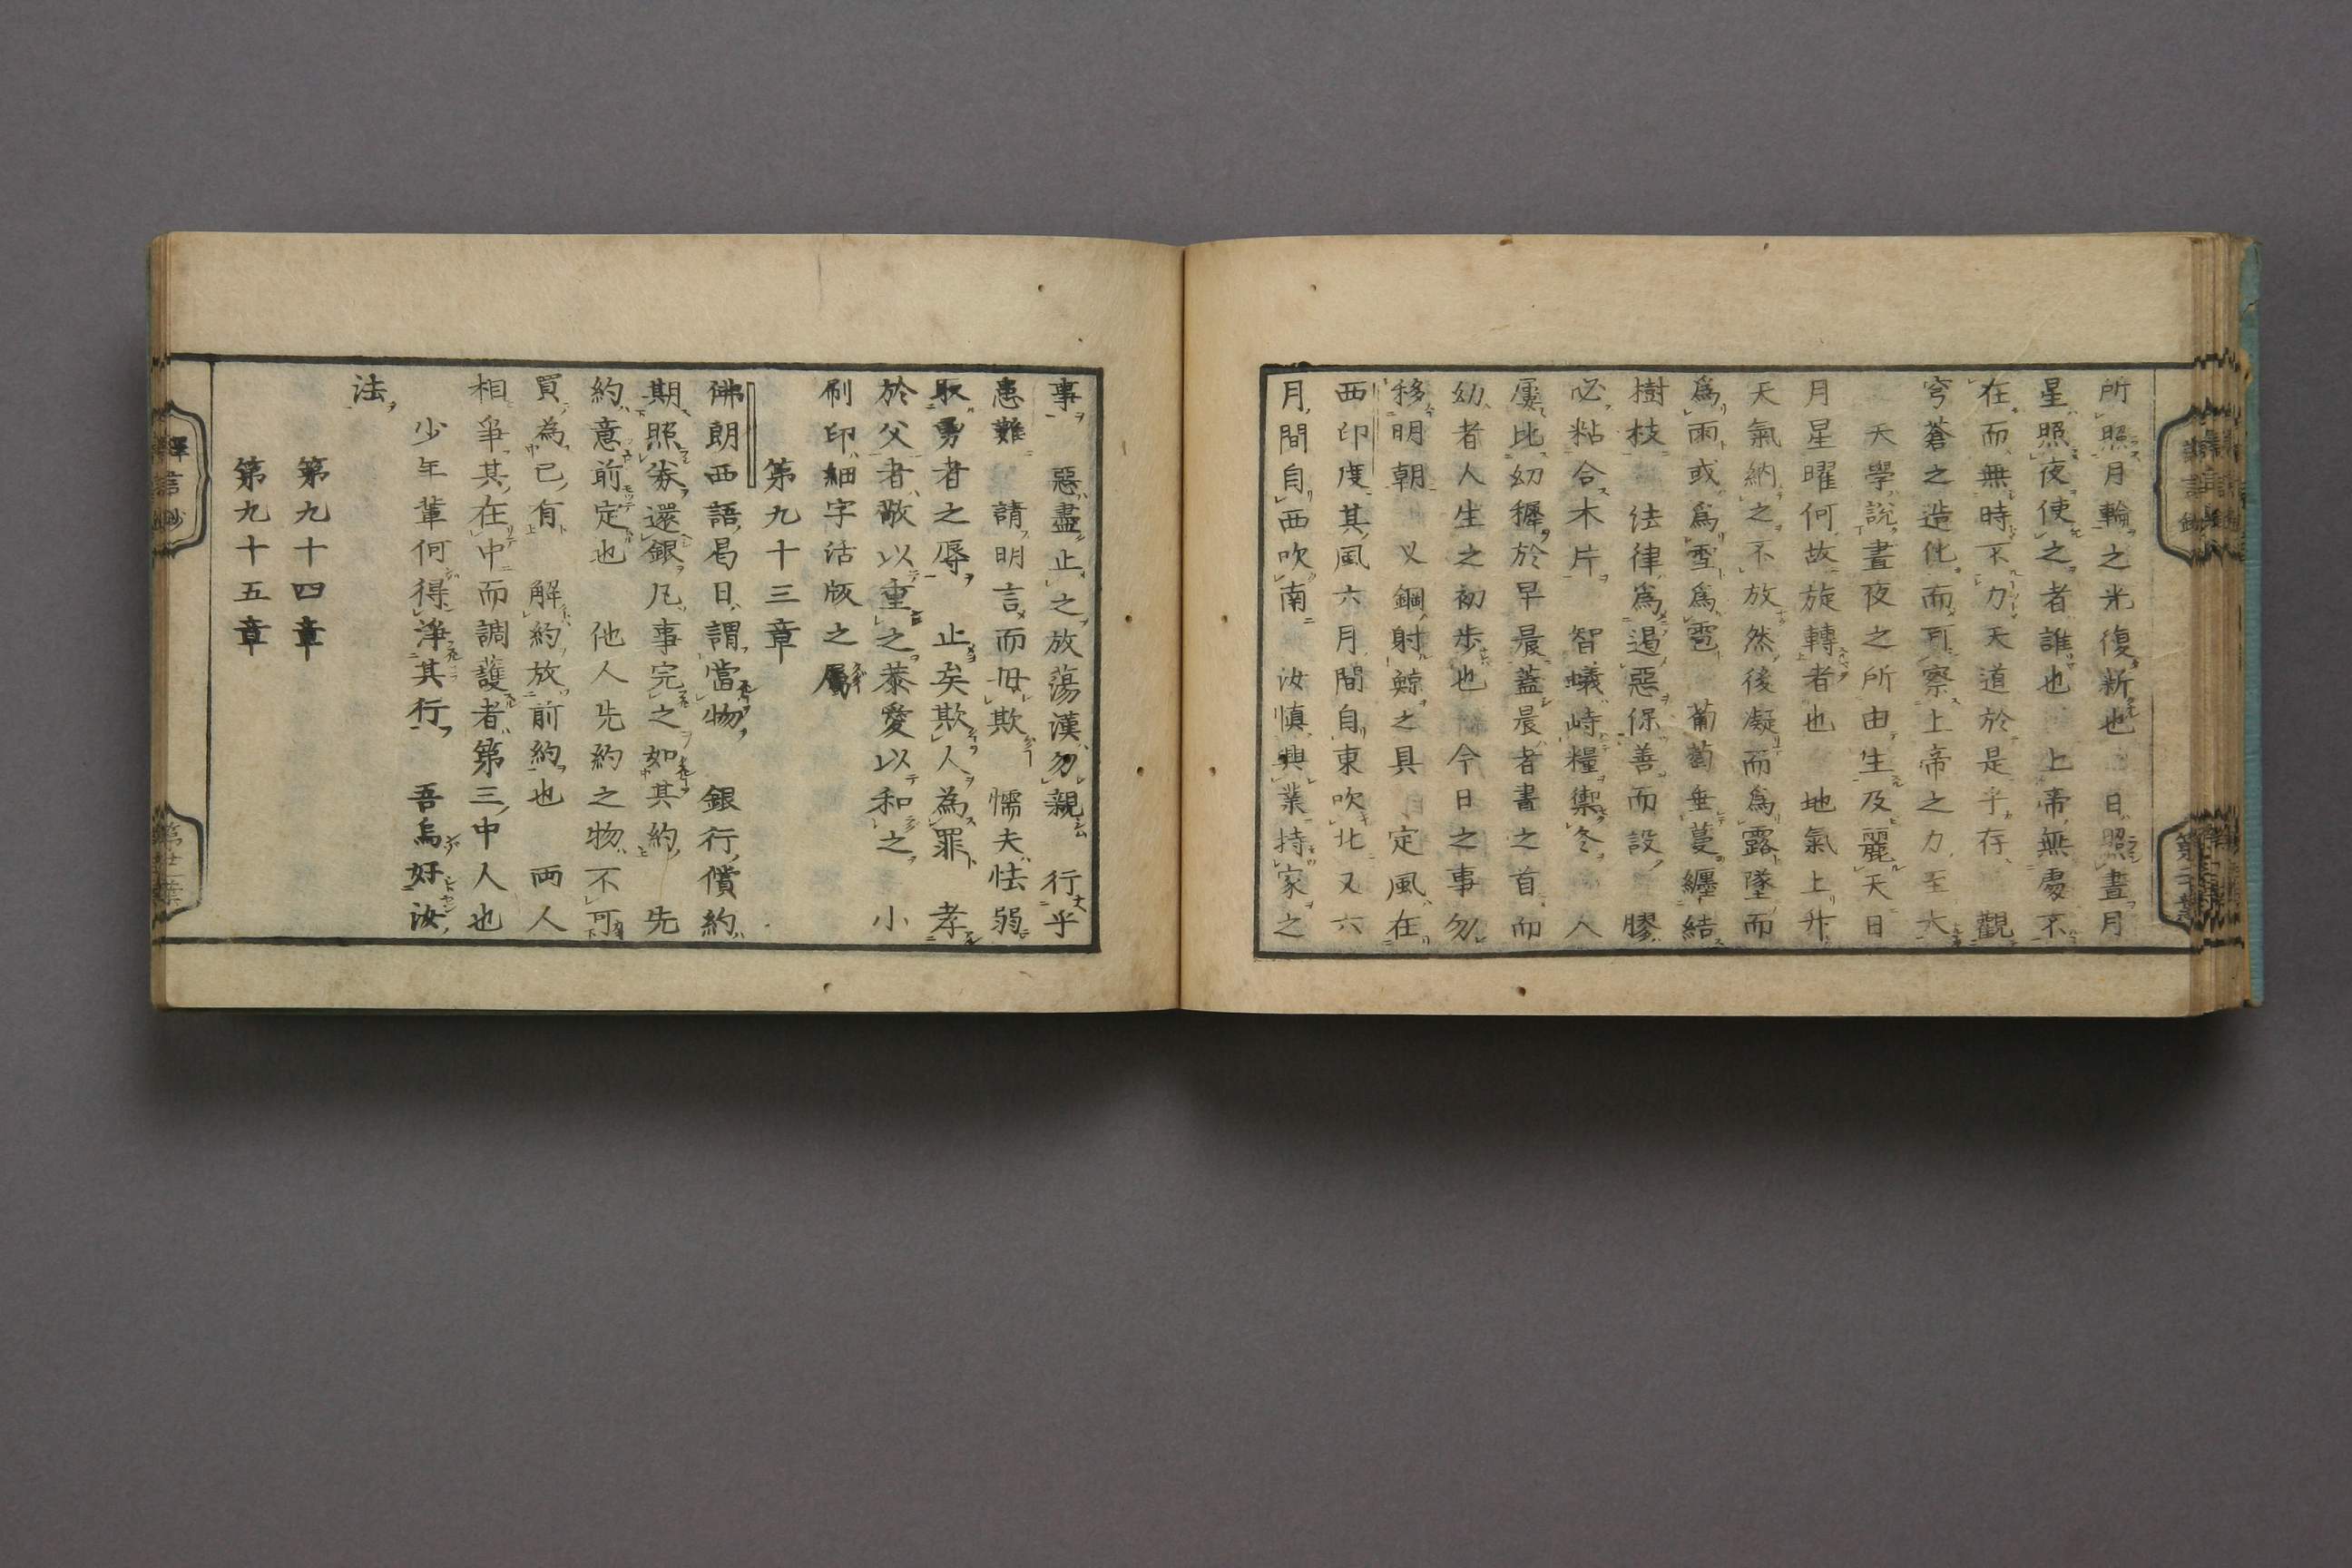 所照月輪之光復新也　日照晝月
星照夜使之者誰也　上帝無處不
在而無時不力天道於是乎存　觀
穹蒼之造化而可察上帝之力至大
天學說晝夜之所由生及麗天日
月星曜何故旋轉者也　地氣上升
天氣納之不放然後凝而爲露墜而
爲雨或爲雪爲雹　葡萄垂蔓纒結
樹枝　法律爲遏惡保善而設　膠
必粘合木片　智蟻峙糧禦冬　人
屢比幼穉於早晨蓋晨者晝之首而
幼者人生之初歩也　今日之事勿
移明朝　乂鋼射鯨之具　定風在
西印度其風六月間自東吹北又六
月間自西吹南　汝愼興業持家之
事　惡盡止之放蕩漢勿親　行乎
患難　請明言而毋欺　懦夫怯弱
取勇者之辱　止矣欺人為罪　孝
於父者敬以重之恭愛以和之　小
刷印細字活版之屬
第九十三章
佛朗西語曷日謂當物　銀行償約
期照劵還銀凡事完之如其約　先
約意前定也　他人先約之物不可
買為已有　解約放前約也　両人
相爭其在中而調護者第三中人也
少年輩何得淨其行　吾烏好汝
法
第九十四章
第九十五章
譯言鈔
第廿一葉